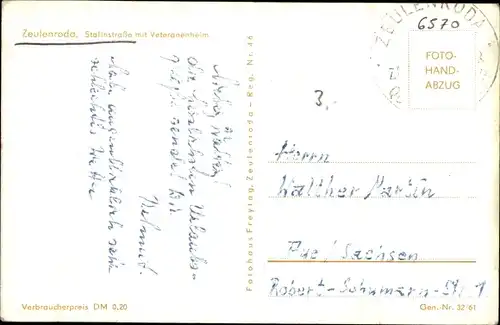 Zeulenroda, Stalinstraße mit Veteranenheim
ZEULENRODA
6570
FOTO-
HAND-
ABZUG
3,-
die herzlichsten Urlaubs-
grüße sendet Dir
Helmut.
Habe augenblicklich sehr
schlechtes Wetter
Fotohaus Freytag, Zeulenroda - Reg. Nr. 46
Herrn
Walther Martin
Aue/Sachsen
Robert-Schumann-Str. 1
Verbraucherpreis DM 0,20
Gen.-Nr. 32/61